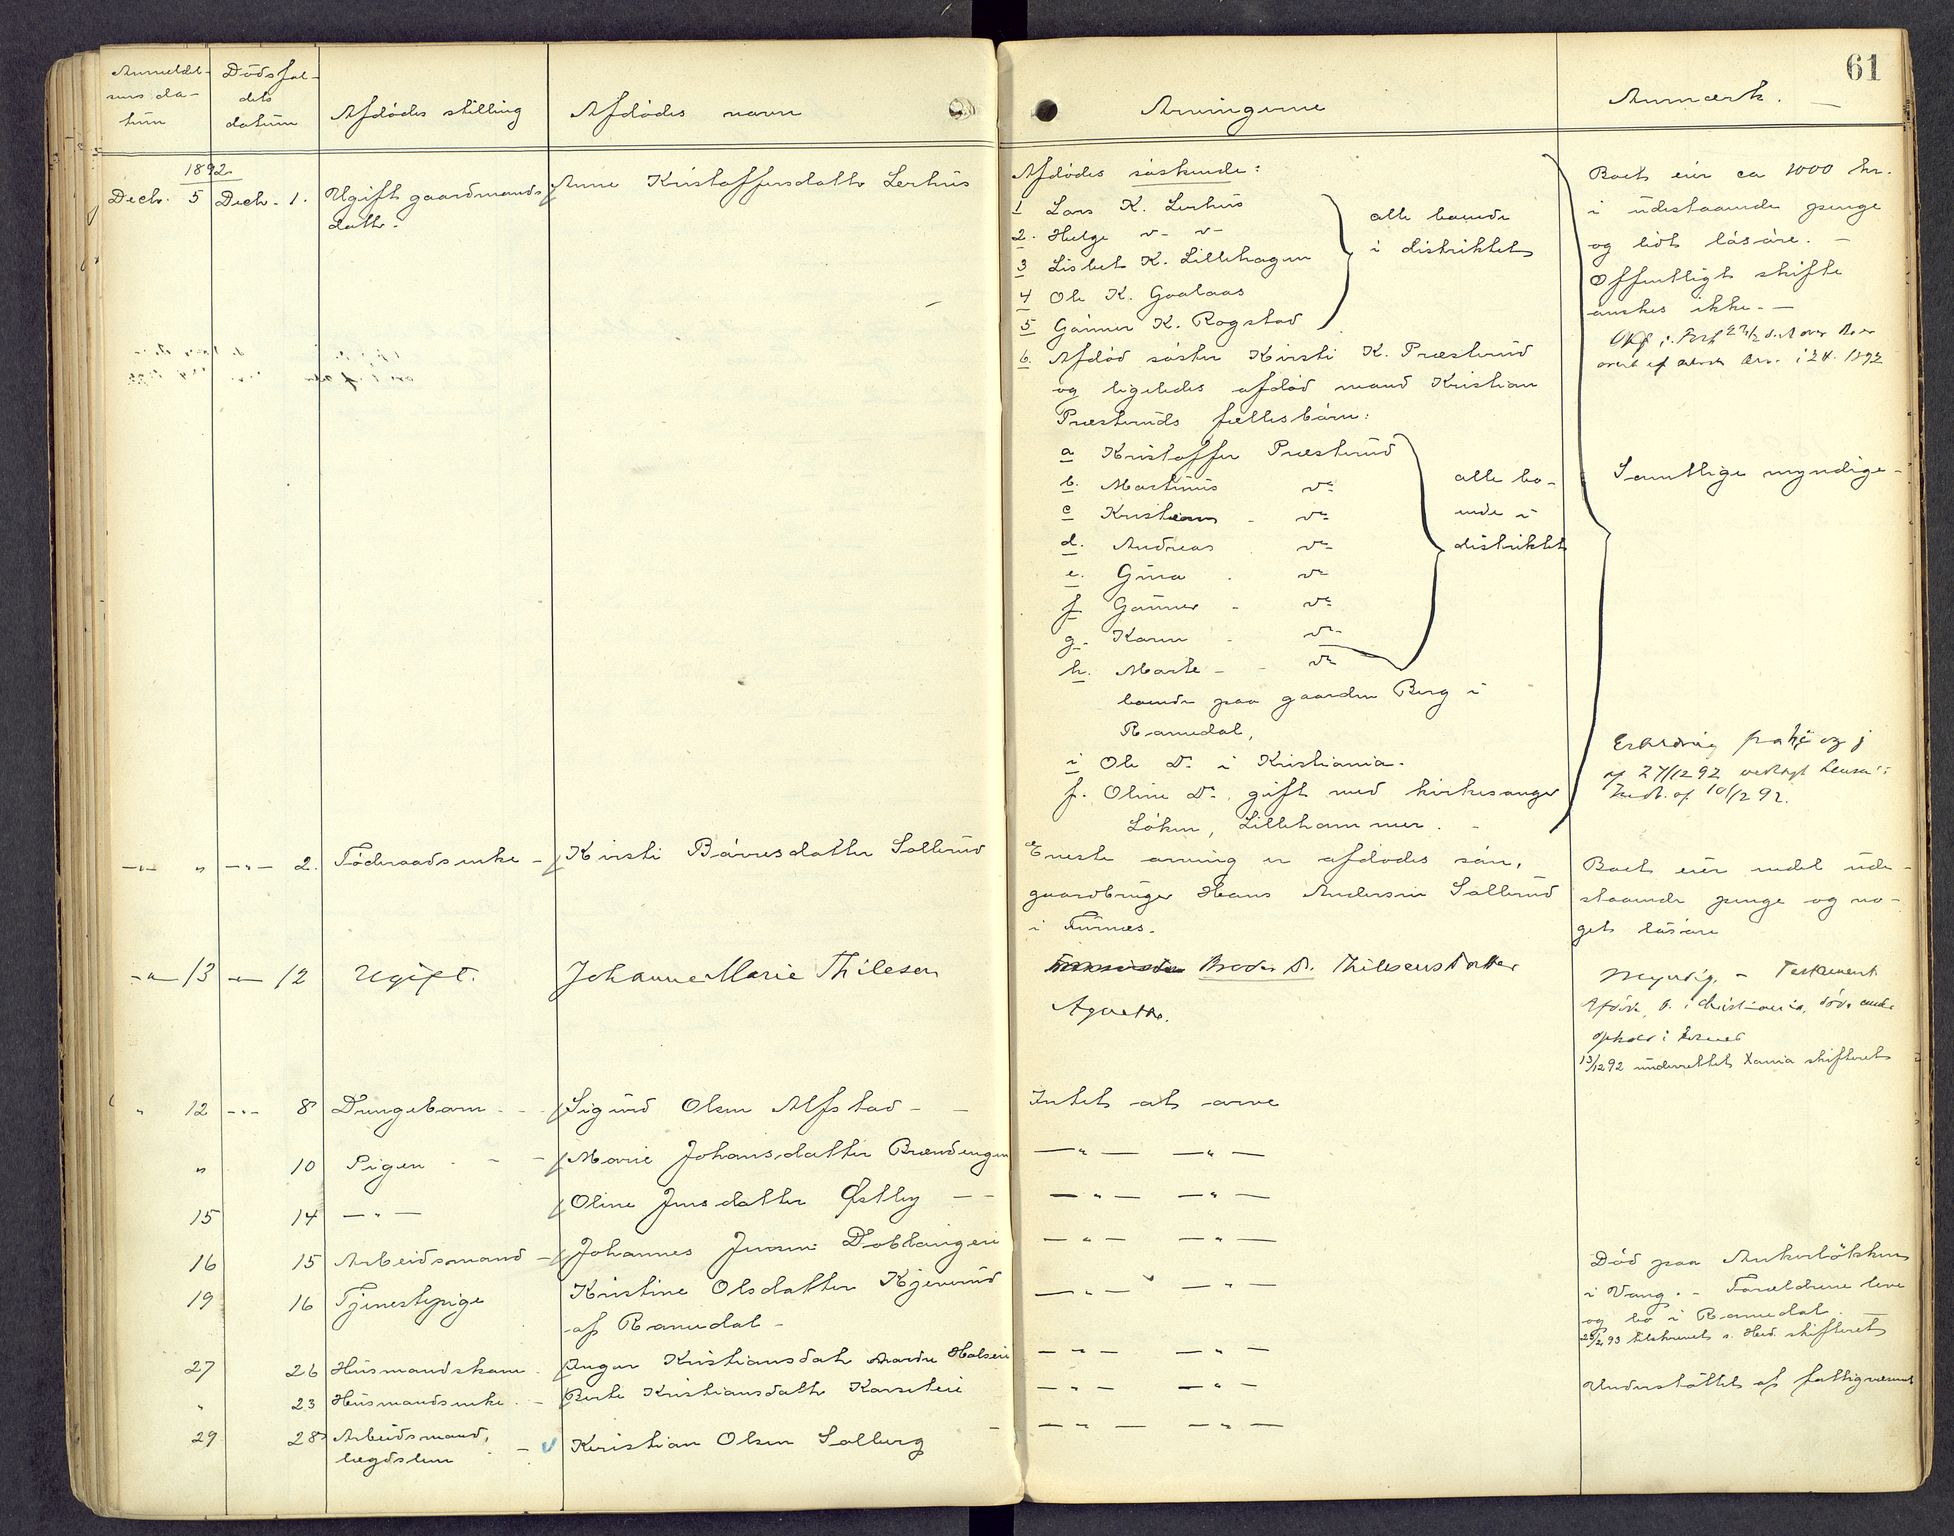 61
Anmeldel-
sens da-
tum
Dødsfal-
dets
datum
Afdødes stilling
Afdødes navn
Arvingerne
Anmærk.
1892
Decb. 5 Decb. 1. Ugift gaardmands
datr.
Anne Kristoffersdatter Lerhus
Afdødes søskende:
1 Lars K. Lerhus
2. Helge
3 Lisbet K. Lillehagen
4 Ole K. Gaalaas
5 Gunner K. Rogstad
alle boende
i distriktet
6. Afdød søster Kirsti K. Præsterud
og ligeledes afdød mand Kristian
Præsteruds fællesbørn:
a Kristoffer Præsterud
b. Martinus
c Kristian
d. Andreas
e. Gina
f Gunner
g. Karen
alle bo-
ende i
distriktet
h. Marte
boende paa gaarden Berg i
Romedal,
i Ole Do. i Kristiania.
j. Oline Do. gift med kirkesanger
Løken, Lillehammer.
Boet eier ca 1000 kr.
i udestaaende penge
og lidt løsøre.
Offentligt skifte
ønskes ikke.
Samtlige myndige
Erklæring fra h, i og j
af 27/12 92
10/12 92.
2. Føderaadsenke
Kirsti Børresdatter Sollerud
Eneste arving er afdødes søn,
gaardbruger Hans Andersen Sollerud
i Furnes.
Boet eier endel ude-
staaende penge og no-
get løsøre
13 12 Ugift.
Johanne Marie Thilesen
Broder Dr. Thilesens Datter
Agnethe.
Myndig. - Testament
Afdøde b. i Christiania, døde under
ophold i Furnes
13/12 92 underrettet Xania skifteret
12 8 Drengebarn
Sigurd Olsen Alfstad
Intet at arve
10 Pigen
Marie Johansdatter Brændengen
15 14
Oline Jensdatter Østby
16 15 Arbeidsmand
Johannes Jensen Dobblangeie
19 16 Tjenestepige
Kristine Olsdatter Kjenerud
af Romedal
Død paa Ankerløkken
i Vang. - Forældrene leve
og bo i Romedal.
tilskrevet s. Hed. skifteret
27 26 Husmandskone
Inger Kristiansdatr Nordre Holseie
23 Husmandsenke
Berte Kristiansdatr Korseteie
Understøttet af fattigvæsenet
29 28 Arbeidsmand,
lægdslem
Kristian Olsen Solberg